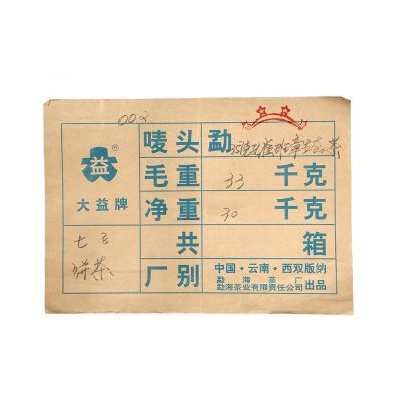 002
益®
大益牌
七子
饼茶
唛头 勐
毛重 33 千克
净重 30 千克
共 箱
厂别 中国·云南·西双版纳
勐海茶厂
勐海茶业有限责任公司 出品